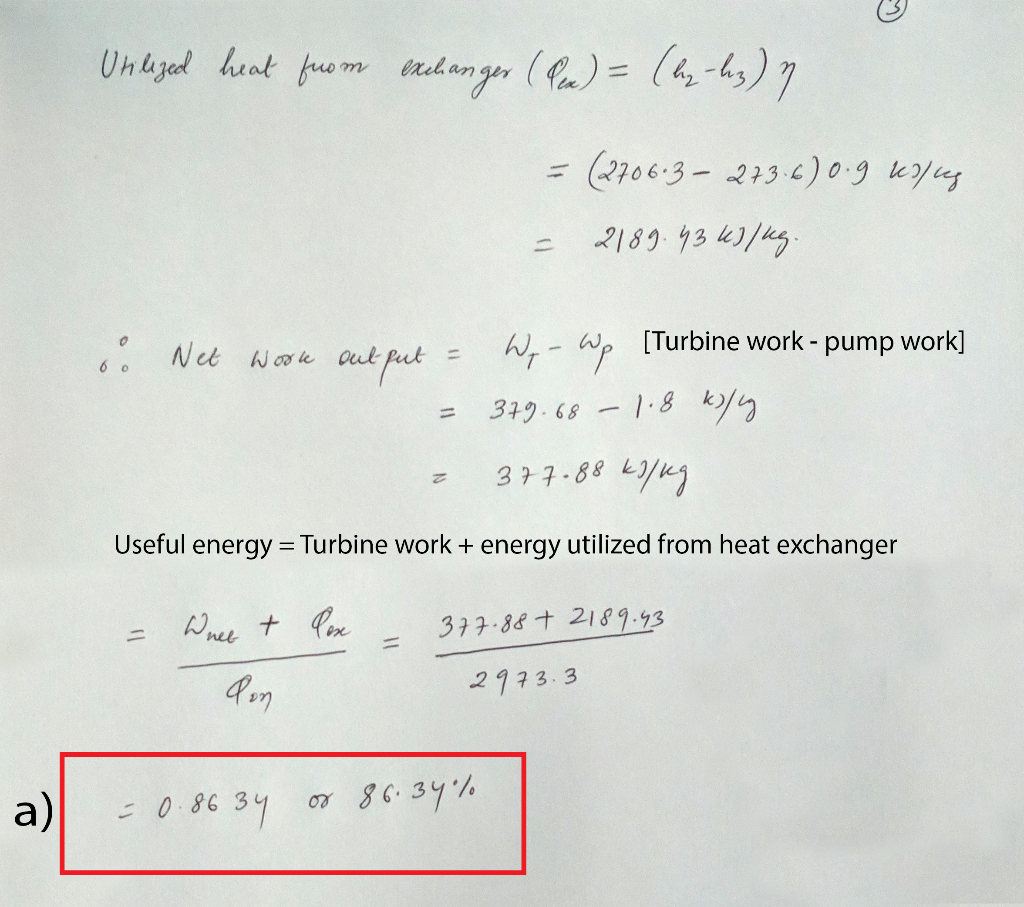 3
Utilized heat from exchanger (Qex) = (h2-h3) η
= (2706.3 - 273.6) 0.9 kJ/kg
= 2189.43 kJ/kg.
∴ Net work output = WT - WP [Turbine work - pump work]
= 379.68 - 1.8 kJ/kg
= 377.88 kJ/kg
Useful energy = Turbine work + energy utilized from heat exchanger
= Wnet + Qex / Qin = 377.88 + 2189.43 / 2973.3
a) = 0.8634 or 86.34%